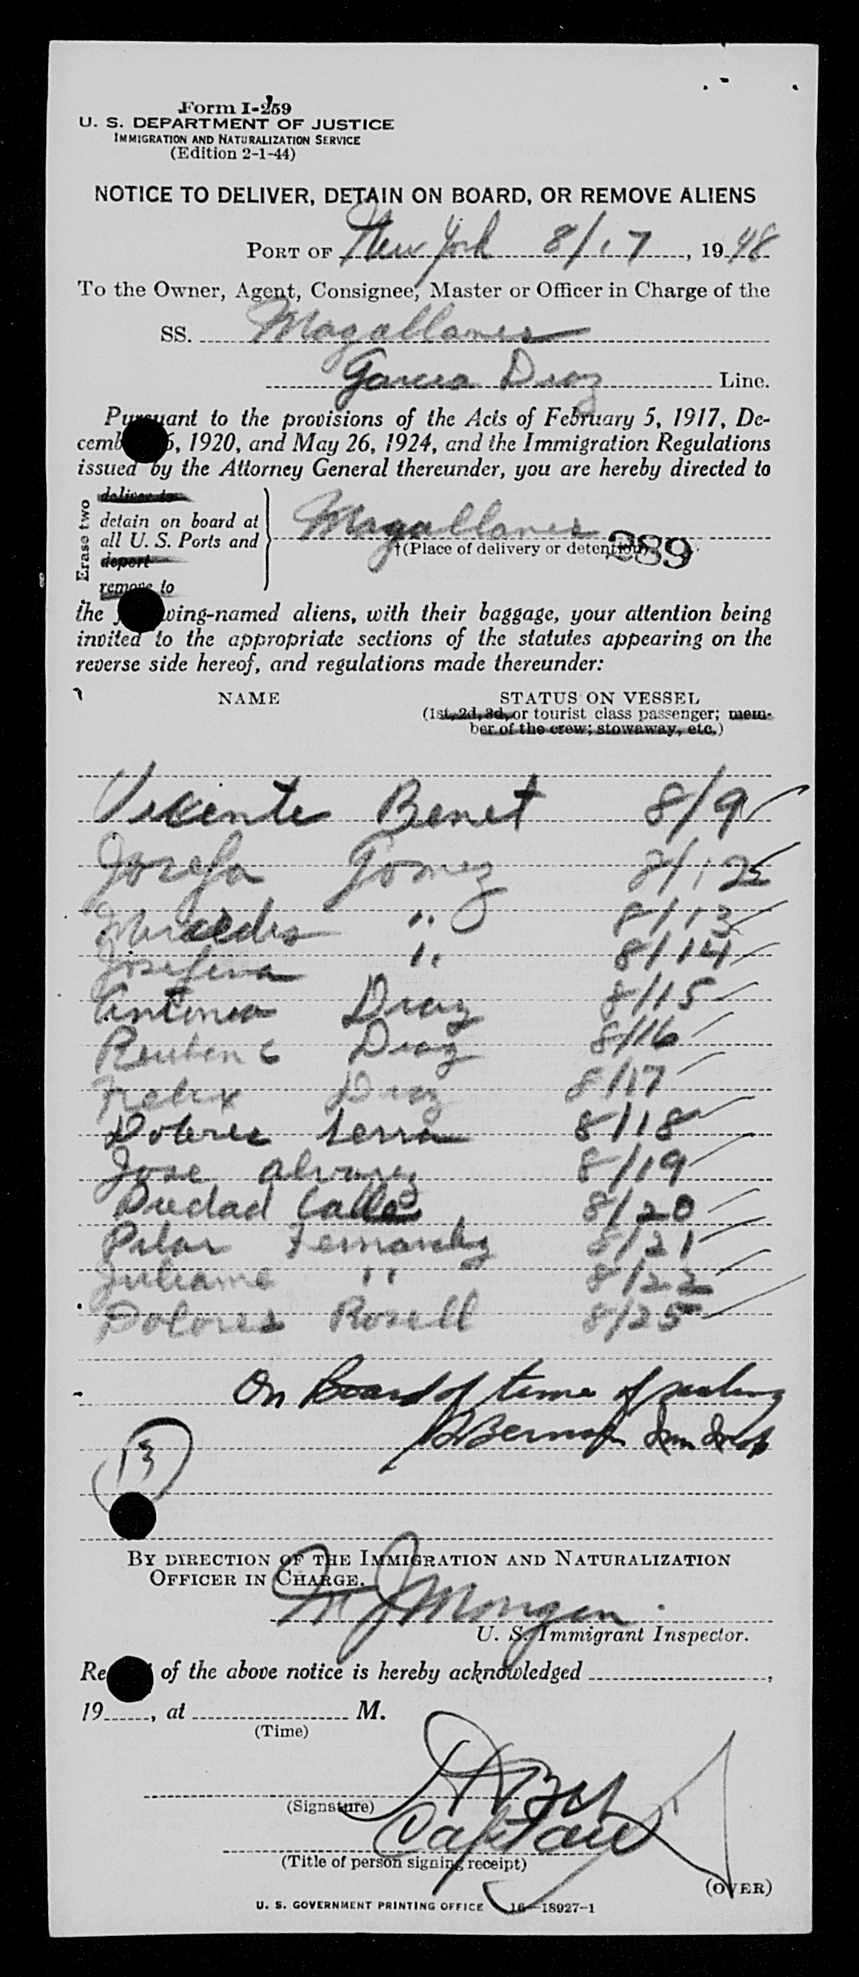 Form I-259
U. S. DEPARTMENT OF JUSTICE
IMMIGRATION AND NATURALIZATION SERVICE
(Edition 2-1-44)
NOTICE TO DELIVER, DETAIN ON BOARD, OR REMOVE ALIENS
PORT OF New York 8/17, 1948
To the Owner, Agent, Consignee, Master or Officer in Charge of the
SS. Magallanes
Garcia Diaz Line.
Pursuant to the provisions of the Acts of February 5, 1917, De-
cemb 6, 1920, and May 26, 1924, and the Immigration Regulations
issued by the Attorney General thereunder, you are hereby directed to
Erase two
deliver to
detain on board at
all U. S. Ports and
deport
remove to
Magallanes
†(Place of delivery or detention)
289
the wing-named aliens, with their baggage, your attention being
invited to the appropriate sections of the statutes appearing on the
reverse side hereof, and regulations made thereunder:
NAME STATUS ON VESSEL
(1st, 2d, 3d, or tourist class passenger; mem-
ber of the crew; stowaway, etc.)
Vicente Benet 8/9
Josefa Gomez 8/12
Mercedes " 8/13
Josefina " 8/14
Antonia Diaz 8/15
Reuben C Diaz 8/16
Felix Diaz 8/17
Dolores Serra 8/18
Jose Alvarez 8/19
Piedad Calle 8/20
Pilar Fernandez 8/21
Juliame " 8/22
Dolores Rosell 8/25
On Board of time of sailing
Imm Insp
13
BY DIRECTION OF THE IMMIGRATION AND NATURALIZATION
OFFICER IN CHARGE.
M J Mongan
U. S. Immigrant Inspector.
Re of the above notice is hereby acknowledged ,
19 , at M.
(Time)
(Signature)
Captain
(Title of person signing receipt)
(OVER)
U. S. GOVERNMENT PRINTING OFFICE 16—18927-1